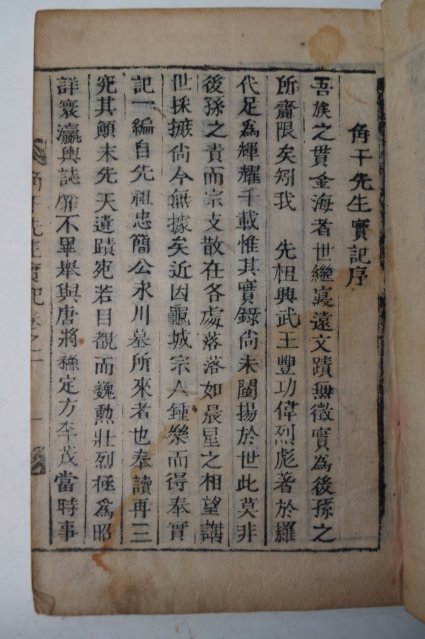 角干先生實記序
吾族之貫金海者世繼寖遠文蹟無徵實為後孫之
所齎限矣矧我 先祖興武王豐功偉烈彪著於羅
代足為輝耀千載惟其實錄尙未闡揚於世此莫非
後孫之責而宗支散在各處落落如晨星之相望講
世採摭尙今無據矣近因龜城宗人鍾樂而得奉實
記一編自先祖忠簡公永川墓所來者也奉讀再三
究其顚末先天遺蹟宛若目覩而巍勲壯烈極為昭
詳寰瀛輿誌靡不畢舉與唐將蘓定方李茂當時事
角干先生實記卷之一